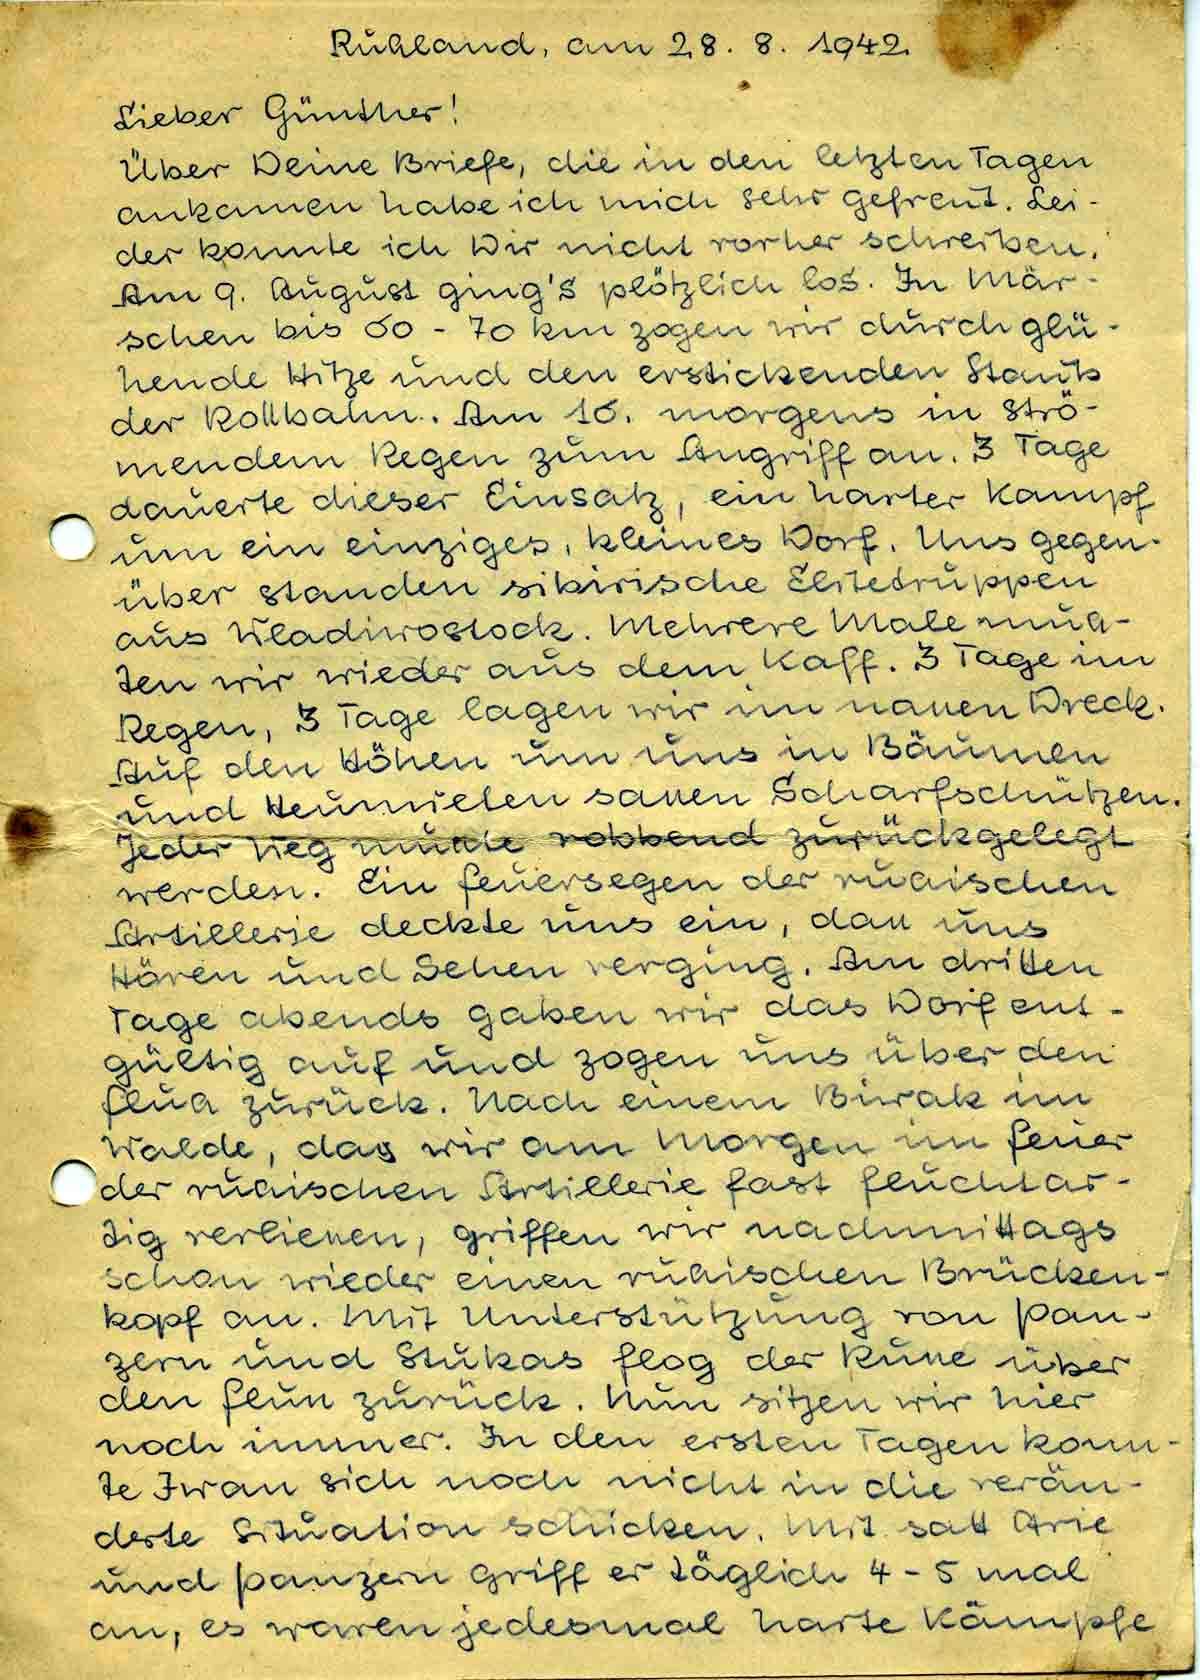 Rußland, am 28. 8. 1942.
Lieber Günther!
Über Deine Briefe, die in den letzten Tagen
ankamen habe ich mich sehr gefreut. Lei-
der konnte ich Dir nicht vorher schreiben.
Am 9. August ging's plötzlich los. In Mär-
schen bis 60 - 70 km zogen wir durch glü-
hende Hitze und den erstickenden Staub
der Rollbahn. Am 16. morgens in strö-
mendem Regen zum Angriff an. 3 Tage
dauerte dieser Einsatz, ein harter Kampf
um ein einziges, kleines Dorf. Uns gegen-
über standen sibirische Elitetruppen
aus Wladiwostock. Mehrere Male muß-
ten wir wieder aus dem Kaff. 3 Tage im
Regen, 3 Tage lagen wir im nassen Dreck.
Auf den Höhen um uns in Bäumen
und Heumieten sassen Scharfschützen.
Jeder Weg musste robbend zurückgelegt
werden. Ein Feuersegen der rußischen
Artillerie deckte uns ein, dass uns
Hören und Sehen verging. Am dritten
Tage abends gaben wir das Dorf ent-
gültig auf und zogen uns über den
Fluß zurück. Nach einem Biwak im
Walde, das wir am Morgen im Feuer
der rußischen Artillerie fast fluchtar-
tig verliessen, griffen wir nachmittags
schon wieder einen rußischen Brücken-
kopf an. Mit Unterstützung von Pan-
zern und Stukas flog der Russe über
den Fluss zurück. Nun sitzen wir hier
noch immer. In den ersten Tagen konn-
te Iwan sich noch nicht in die verän-
derte Situation schicken. Mit satt Arie
und Panzern griff er täglich 4 - 5 mal
an, es waren jedesmal harte Kämpfe